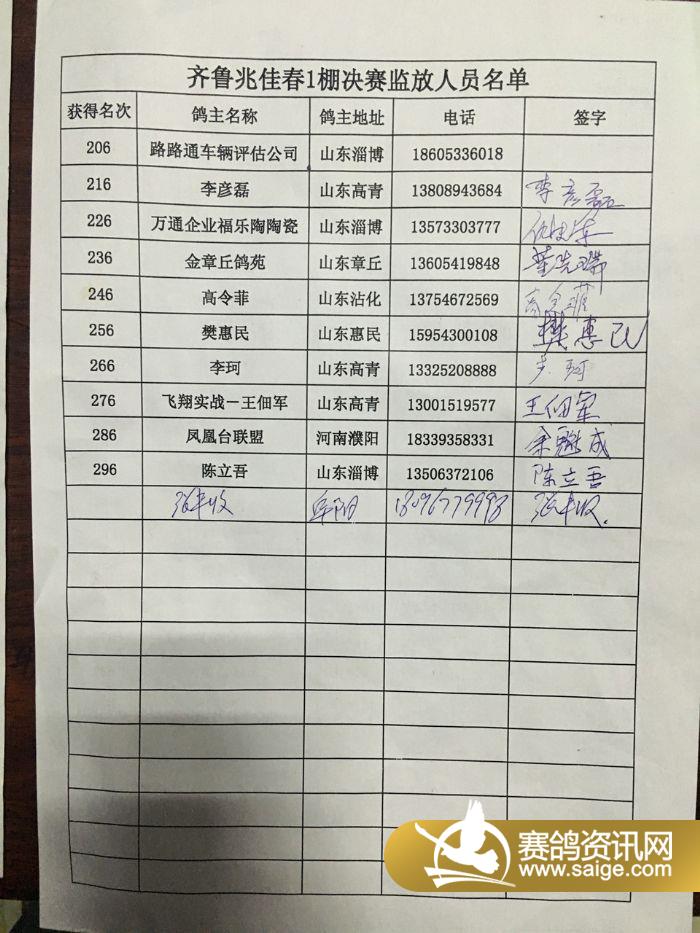 齐鲁兆佳春1棚决赛监放人员名单
获得名次 鸽主名称 鸽主地址 电话 签字
206 路路通车辆评估公司 山东淄博 18605336018
216 李彦磊 山东高青 13808943684 李彦磊
226 万通企业福乐陶陶瓷 山东淄博 13573303777
236 金章丘鸽苑 山东章丘 13605419848
246 高令菲 山东沾化 13754672569 高令菲
256 樊惠民 山东惠民 15954300108 樊惠民
266 李珂 山东高青 13325208888 李珂
276 飞翔实战－王佃军 山东高青 13001519577 王佃军
286 凤凰台联盟 河南濮阳 18339358331
296 陈立吾 山东淄博 13506372106 陈立吾
张丰收 阜阳 张丰收
赛鸽资讯网
www.saige.com